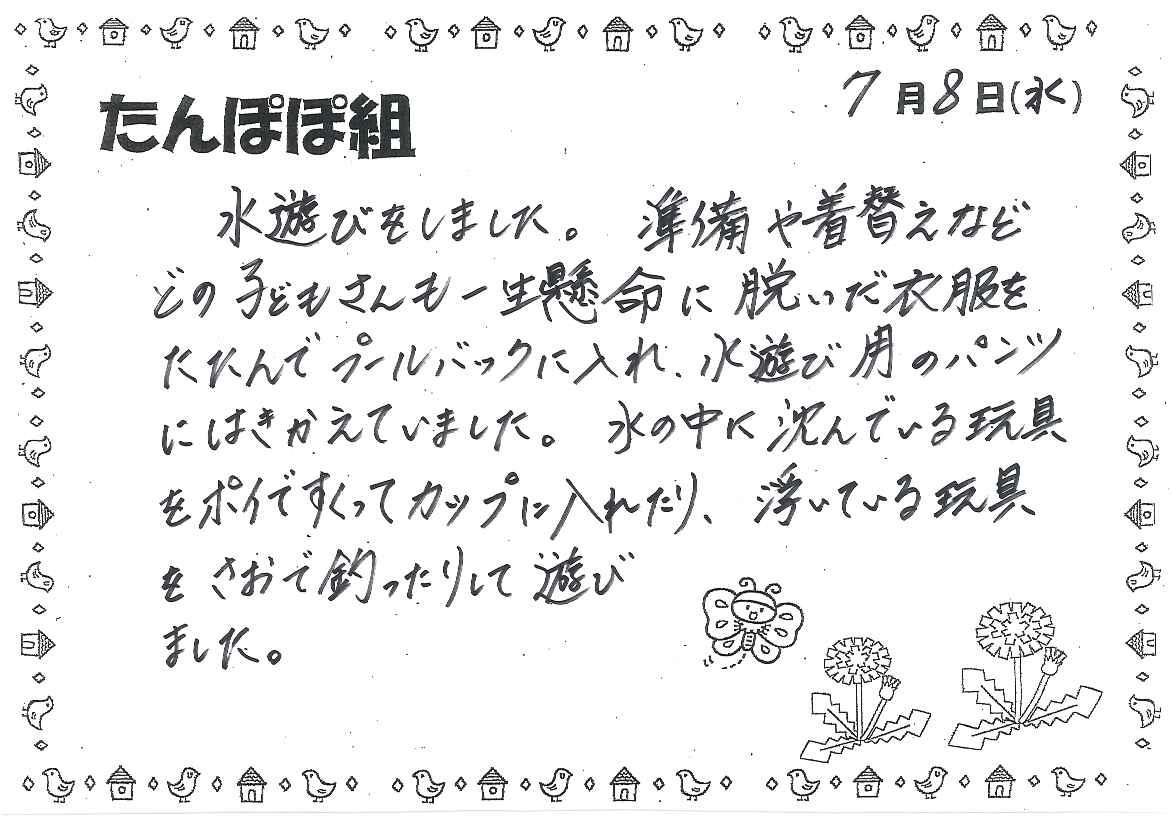 7月8日(水)
たんぽぽ組
水遊びをしました。 準備や着替えなど
どの子どもさんも一生懸命に脱いだ衣服を
たたんでプールバックに入れ、水遊び用のパンツ
にはきかえていました。 水の中に沈んでいる玩具
をポイですくってカップに入れたり、浮いている玩具
をさおで釣ったりして遊び
ました。